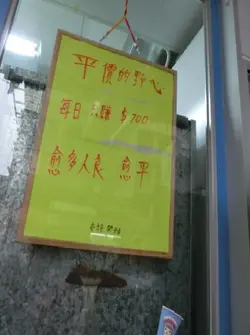 平價的野心
每日 只賺 $700
愈多人食 愈平